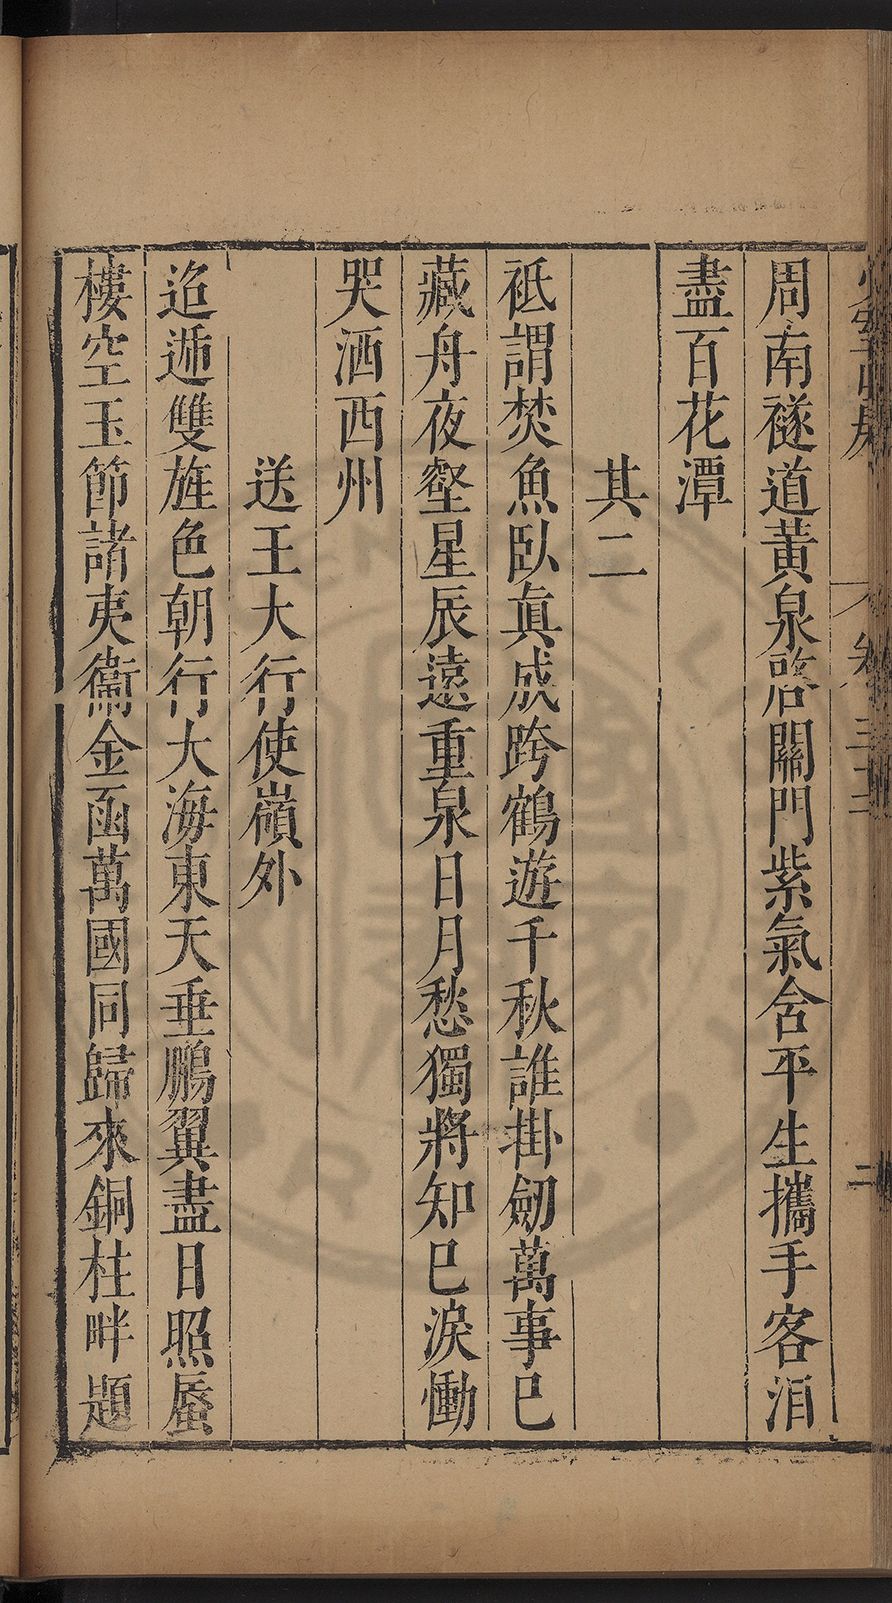 卷三十三
二
周南襚道黃泉啓關門紫氣含平生攜手客泪
盡百花潭
其二
祇謂焚魚臥真成跨鶴遊千秋誰掛劒萬事巳
藏舟夜壑星辰遠重泉日月愁獨將知巳淚慟
哭洒西州
送王大行使嶺外
迢遞雙旌色朝行大海東天垂鵬翼盡日照蜃
樓空玉節諸夷衞金函萬國同歸來銅柱畔題